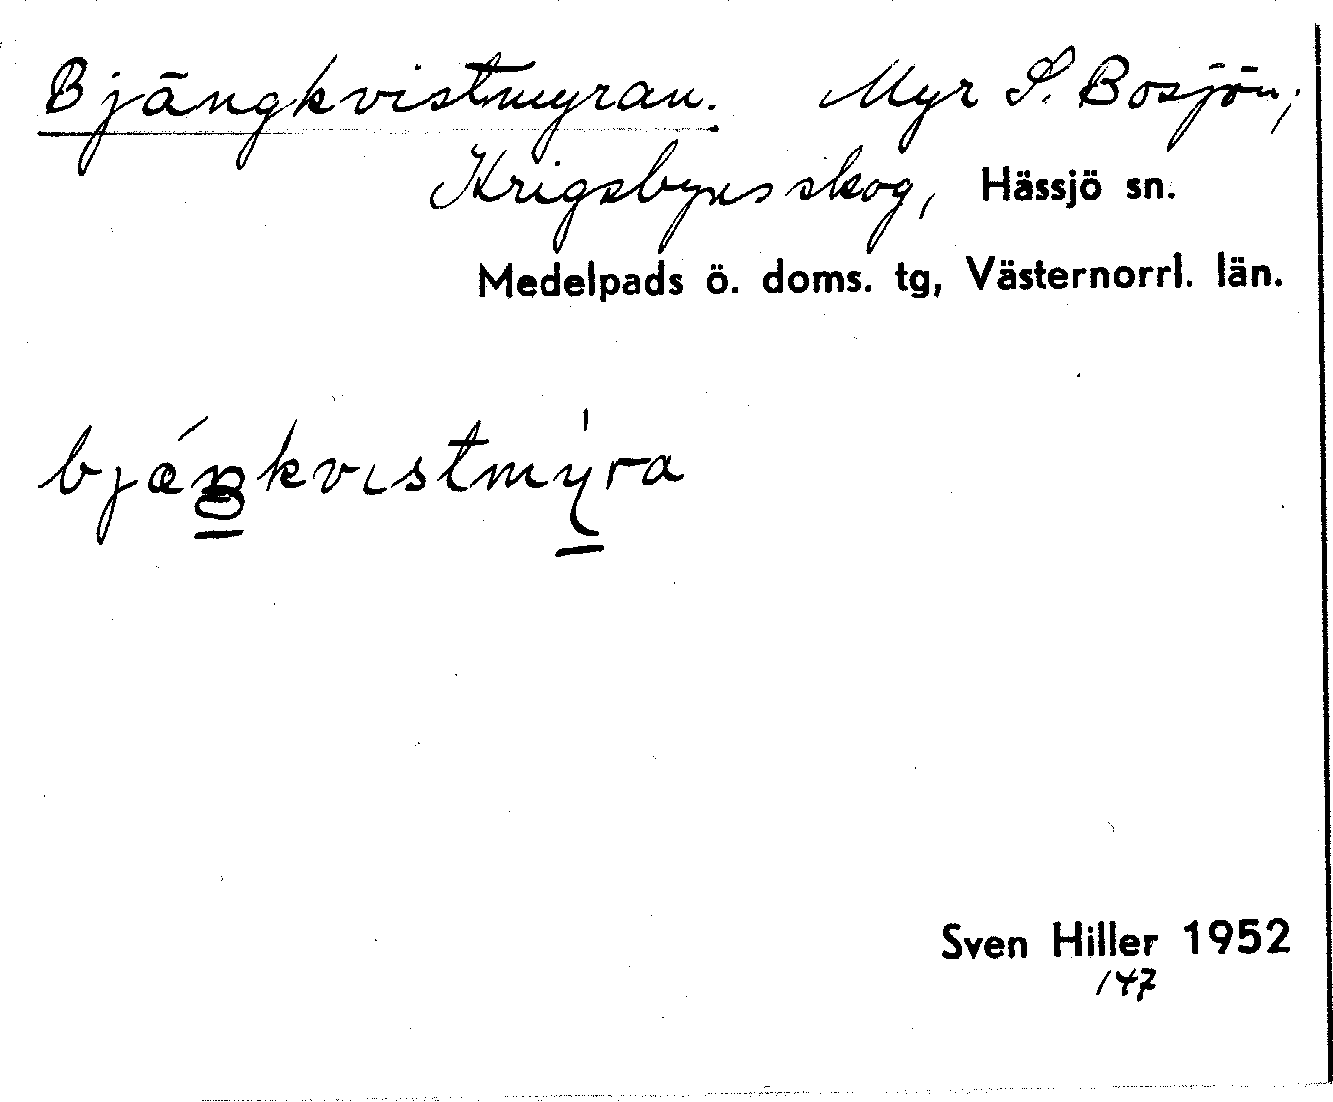 Bjängkvistmyran. Myr S. Bosjön,
Krigsbyns skog, Hässjö sn.
Medelpads ö. doms. tg, Västernorrl. län.
bjǽŋkvıstmy̍ra
Sven Hiller 1952
147